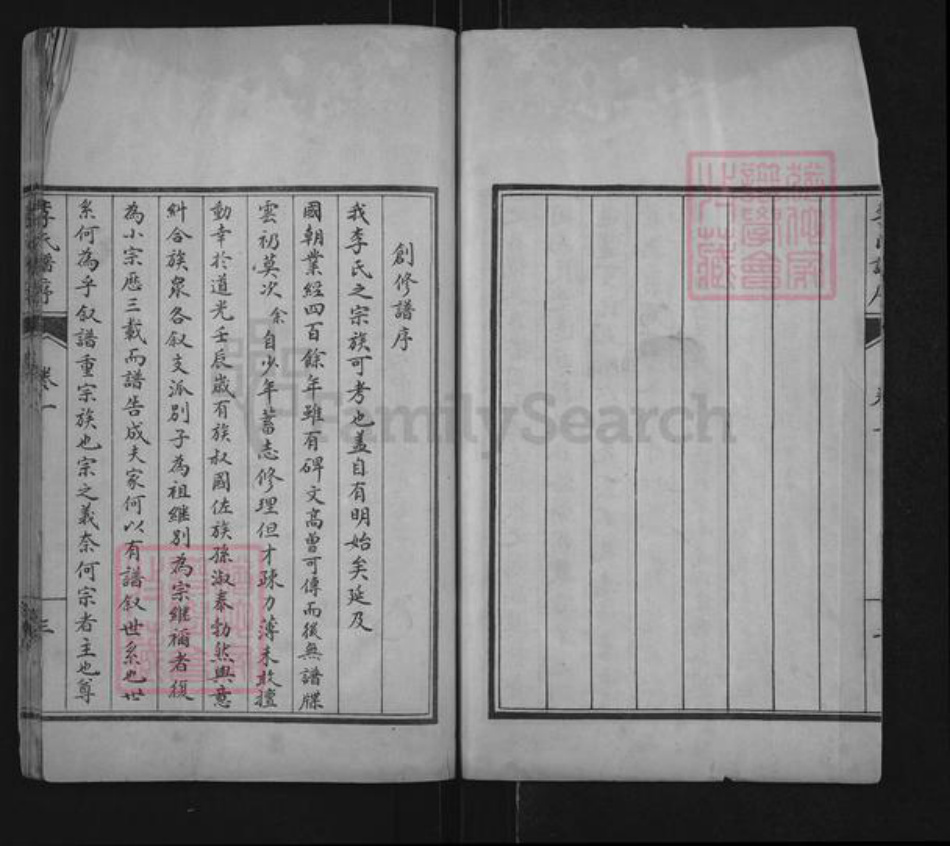 創修譜序
我李氏之宗族可考也蓋自有明始矣延及
國朝業經四百餘年雖有碑文高曾可傳而後無譜牒
雲礽莫次余自少年蓄志修理但才疎力薄未敢擅
動幸於道光壬辰歲有族叔國佐族孫淑泰勃然興意
糾合族眾各敘支派別子為祖繼別為宗繼禰者復
為小宗歷三載而譜告成夫家何以有譜敘世系也世
系何為乎叙譜重宗族也宗之義奈何宗者主也尊
李氏譜序 卷一 三
FamilySearch